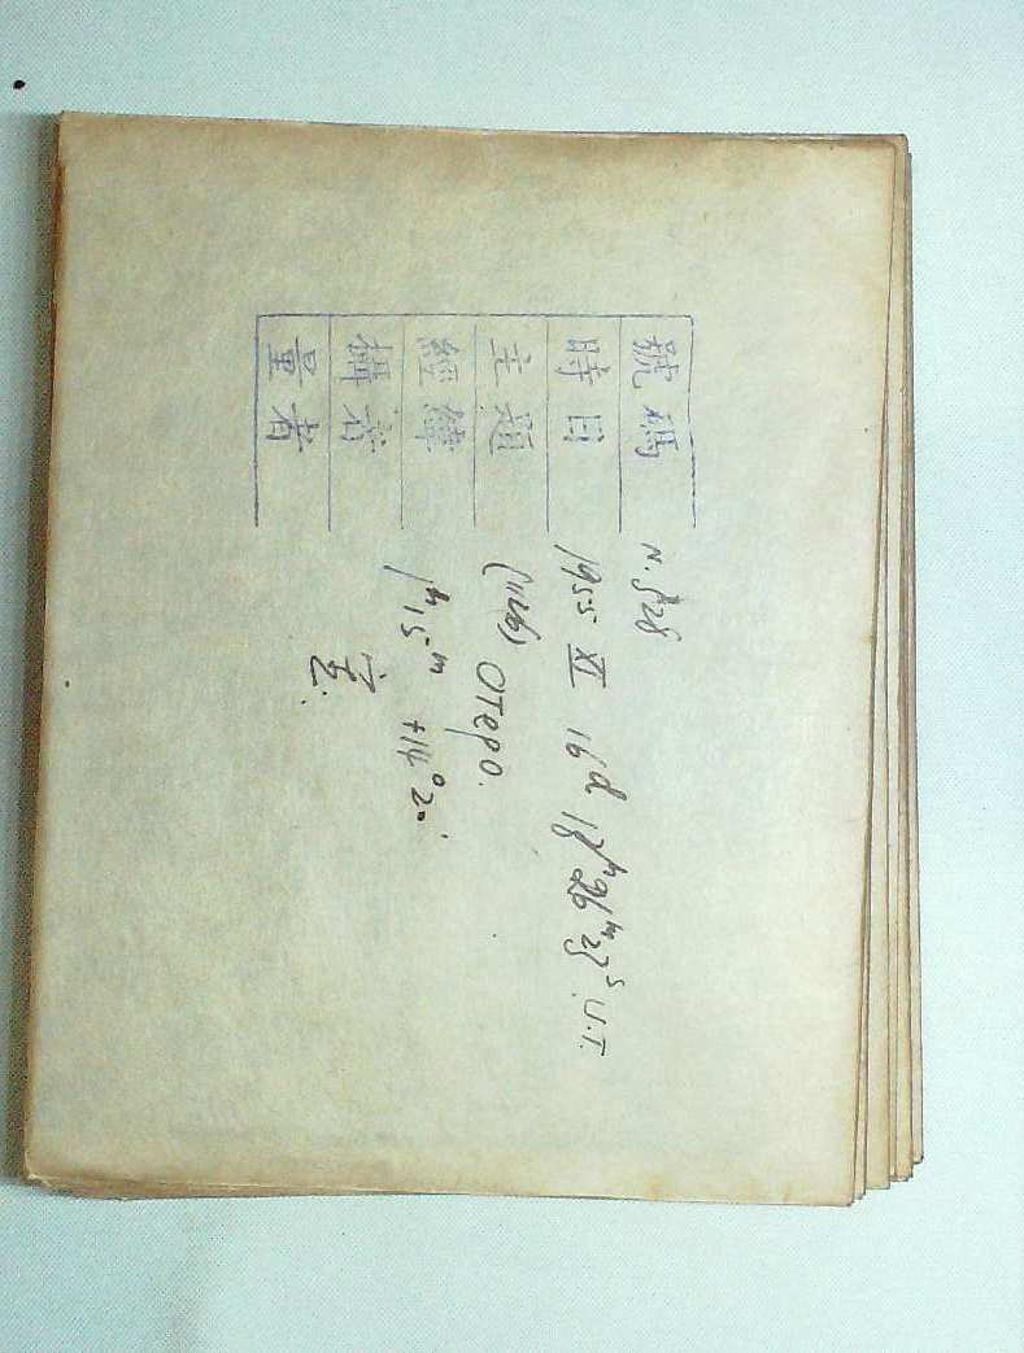 號碼 N. 828
時日 1955 XI 16d 18h 26m 23s U.T.
主題 (1126) OTepo.
經緯 1h 15m +14° 20'
攝者
量者